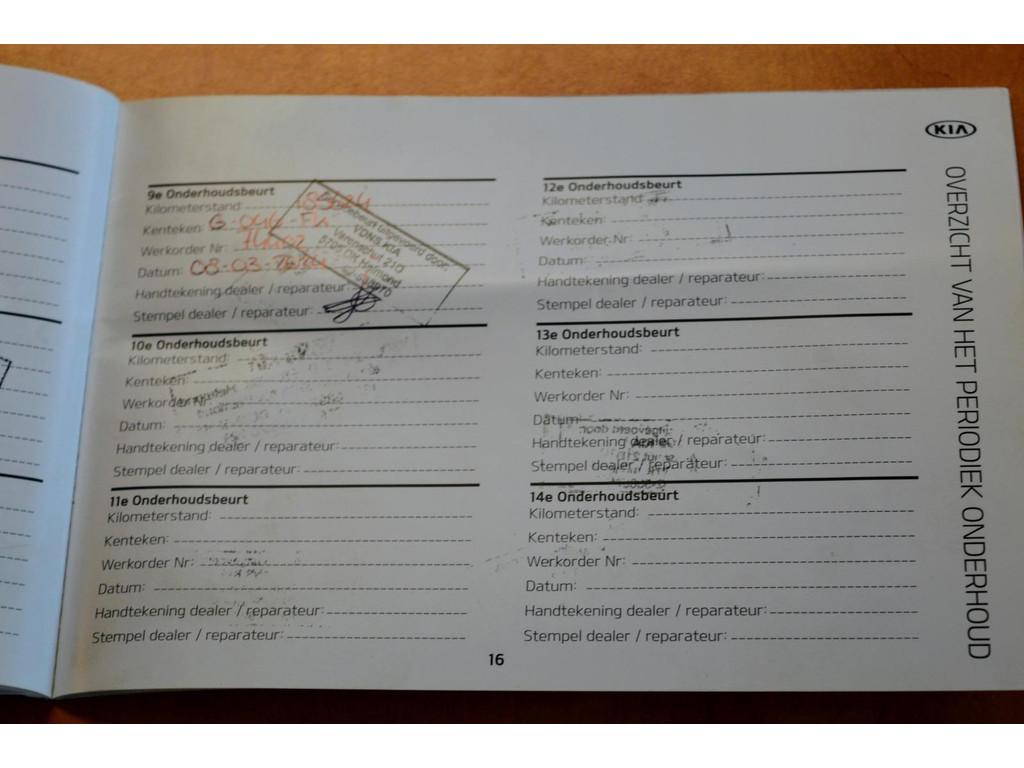 KIA
OVERZICHT VAN HET PERIODIEK ONDERHOUD
9e Onderhoudsbeurt
Kilometerstand:
Kenteken: G-
Werkorder Nr:
Datum: 08-03-
Handtekening dealer / reparateur:
Stempel dealer / reparateur:
beurt uitgevoerd door:
VDNS KIA
Varenschut 21D
5705 DK Helmond
10e Onderhoudsbeurt
Kilometerstand:
Kenteken:
Werkorder Nr:
Datum:
Handtekening dealer / reparateur:
Stempel dealer / reparateur:
11e Onderhoudsbeurt
Kilometerstand:
Kenteken:
Werkorder Nr:
Datum:
Handtekening dealer / reparateur:
Stempel dealer / reparateur:
12e Onderhoudsbeurt
Kilometerstand:
Kenteken:
Werkorder Nr:
Datum:
Handtekening dealer / reparateur:
Stempel dealer / reparateur:
13e Onderhoudsbeurt
Kilometerstand:
Kenteken:
Werkorder Nr:
Datum:
Handtekening dealer / reparateur:
Stempel dealer / reparateur:
14e Onderhoudsbeurt
Kilometerstand:
Kenteken:
Werkorder Nr:
Datum:
Handtekening dealer / reparateur:
Stempel dealer / reparateur:
16